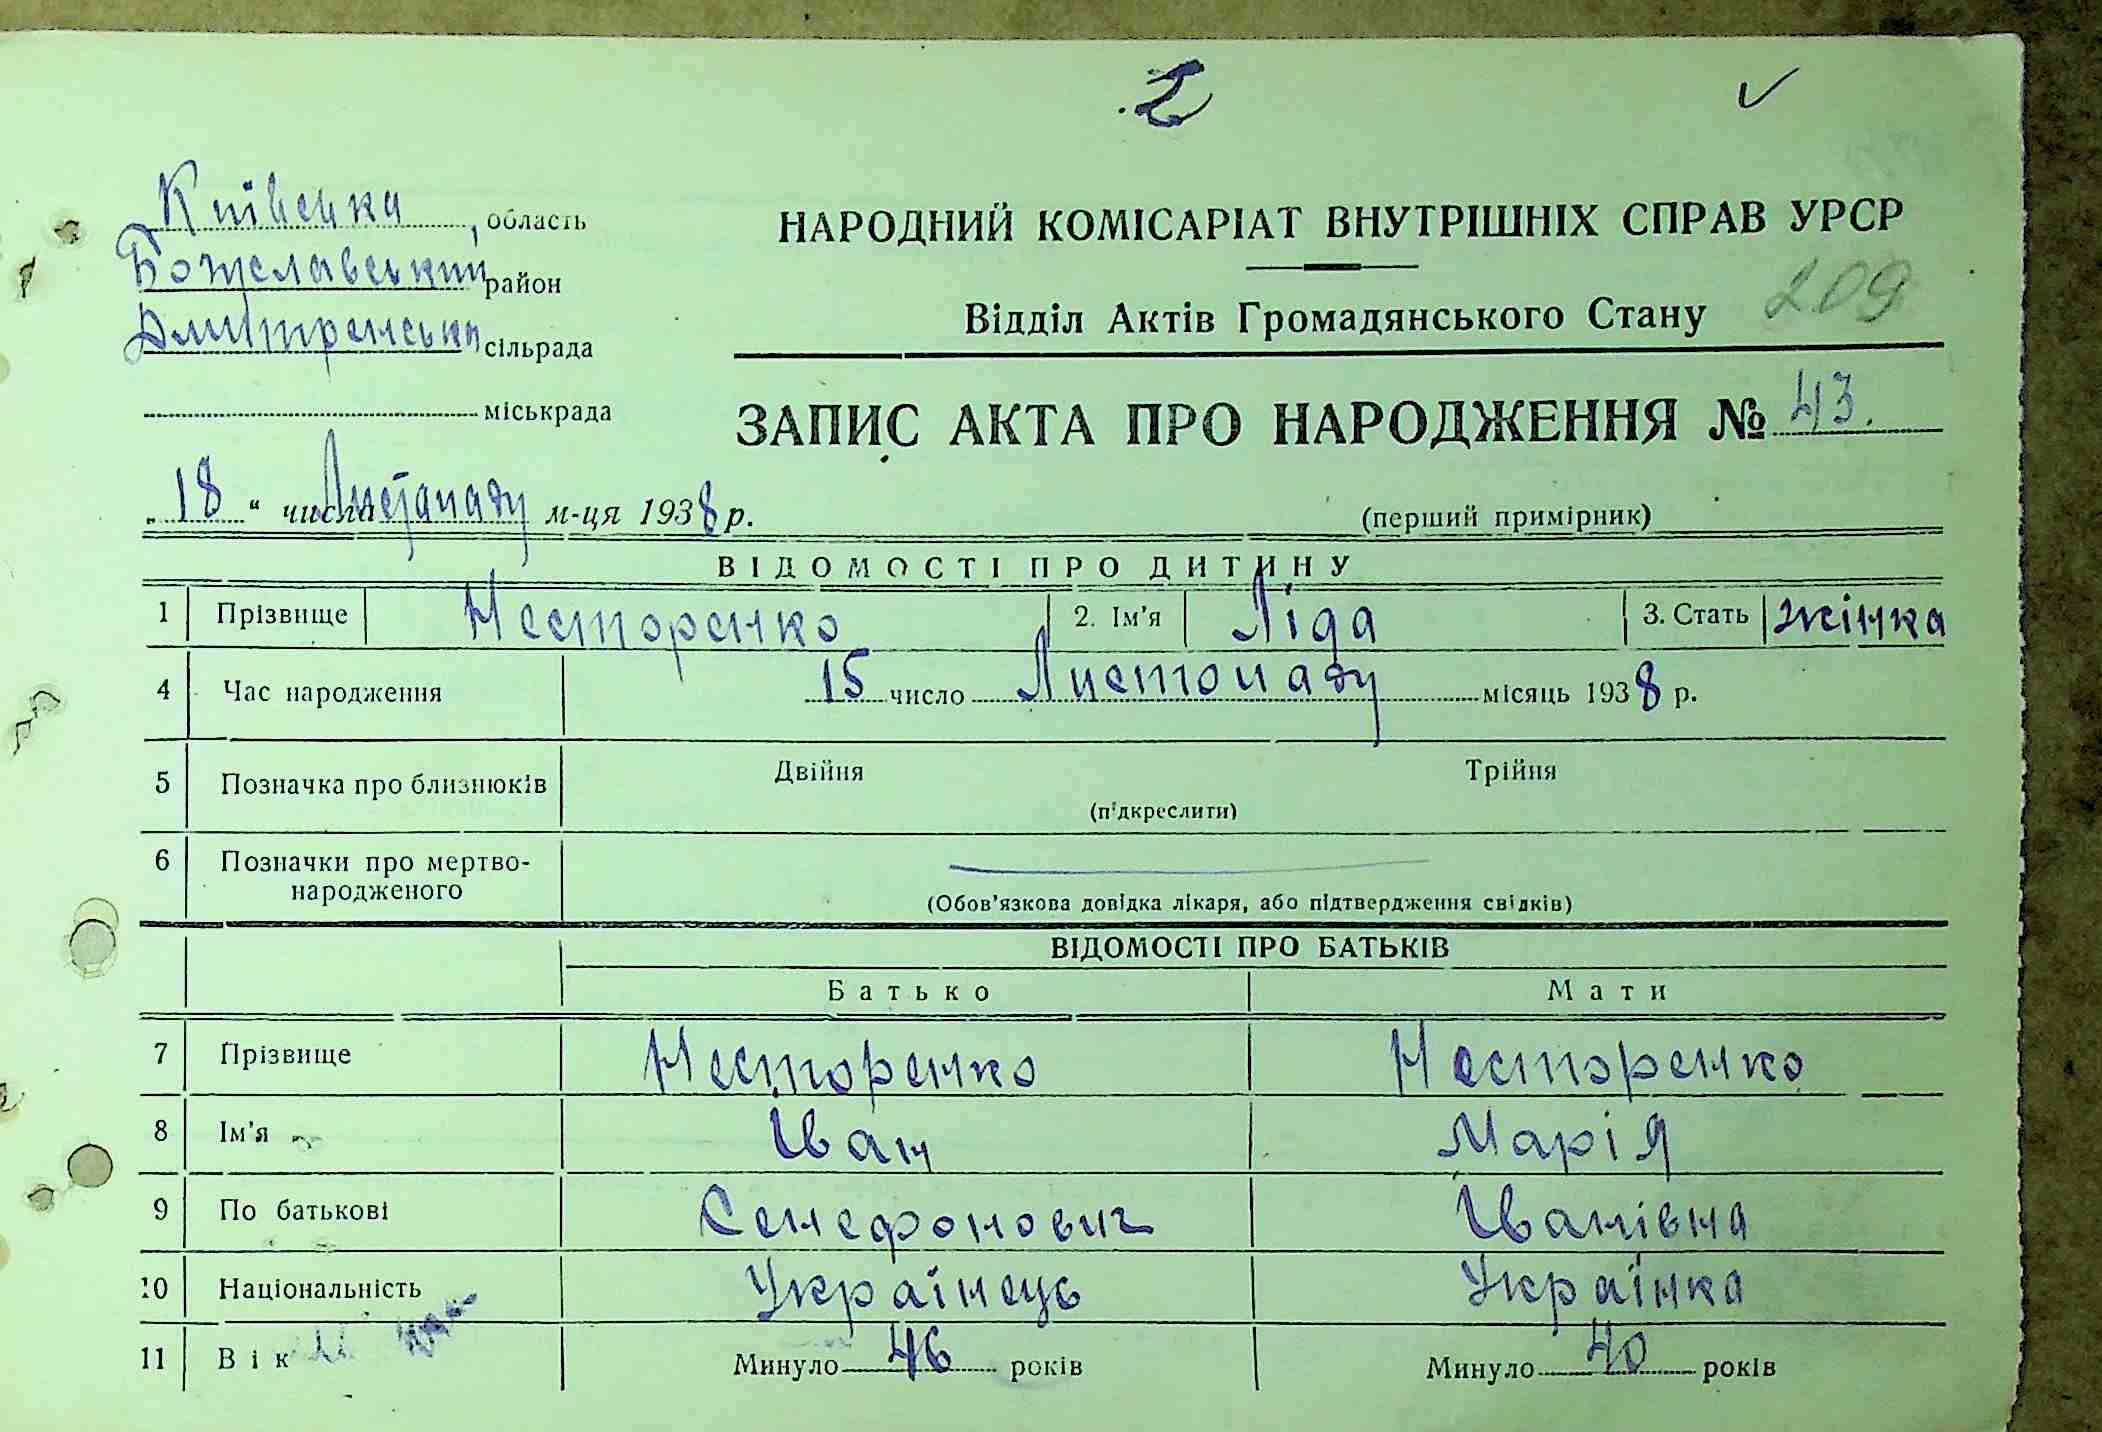 2
Київська, область
Божславський район
Дмитренська сільрада
міськрада
НАРОДНИЙ КОМІСАРІАТ ВНУТРІШНІХ СПРАВ УРСР
Відділ Актів Громадянського Стану 209
ЗАПИС АКТА ПРО НАРОДЖЕННЯ № 43.
„18“ числа Листападу м-ця 1938 р. (перший примірник)
ВІДОМОСТІ ПРО ДИТИНУ
1 Прізвище Несторенко 2. Ім'я Ліда 3. Стать жінка
4 Час народження 15 число Листопаду місяць 1938 р.
5 Позначка про близнюків Двійня Трійня
(підкреслити)
6 Позначки про мертво-
народженого
(Обов'язкова довідка лікаря, або підтвердження свідків)
ВІДОМОСТІ ПРО БАТЬКІВ
Батько Мати
7 Прізвище Несторенко Несторенко
8 Ім'я Іван Марія
9 По батькові Сенефонович Іванівна
10 Національність Українець Українка
11 Вік Минуло 46 років Минуло 40 років